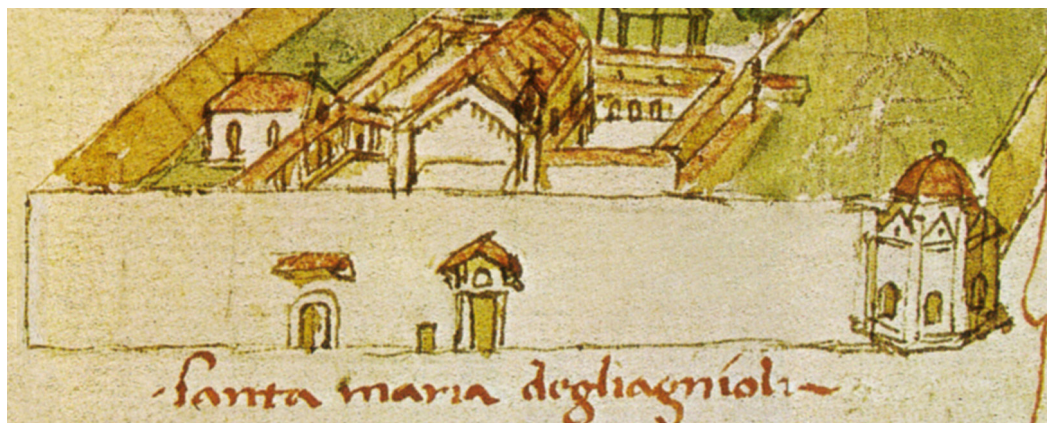 santa maria degliagnioli